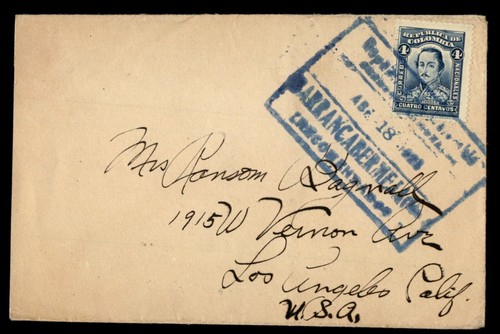 REPUBLICA DE
COLOMBIA
4 4
CORREOS NACIONALES
CUATRO CENTAVOS
18
BARRANCABERMEJA
Mrs Ransom Bagnall
1915 W Vernon Ave
Los Angeles Calif.
U.S.A.